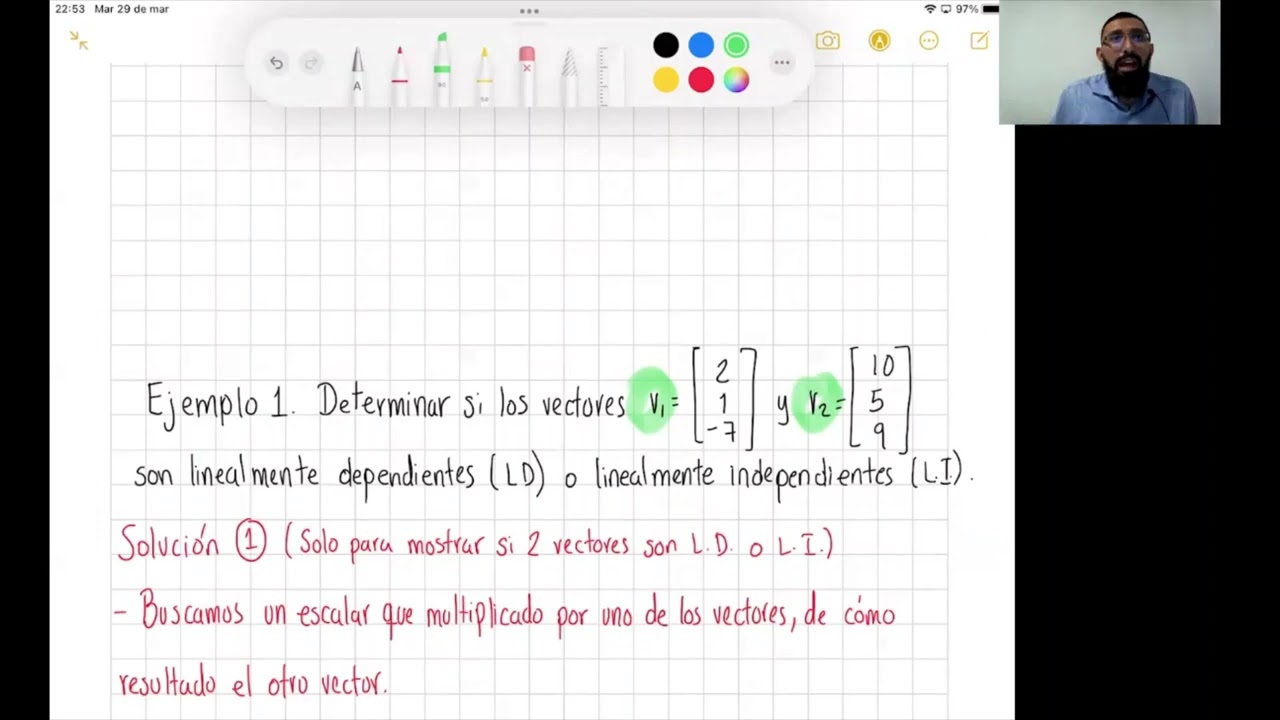 22:53 Mar 29 de mar 97%
Ejemplo 1. Determinar si los vectores v₁ = [2 1 -7] y v₂ = [10 5 9]
son linealmente dependientes (LD) o linealmente independientes (L.I.).
Solución ① (Solo para mostrar si 2 vectores son L.D. o L.I.)
- Buscamos un escalar que multiplicado por uno de los vectores, de cómo
resultado el otro vector.